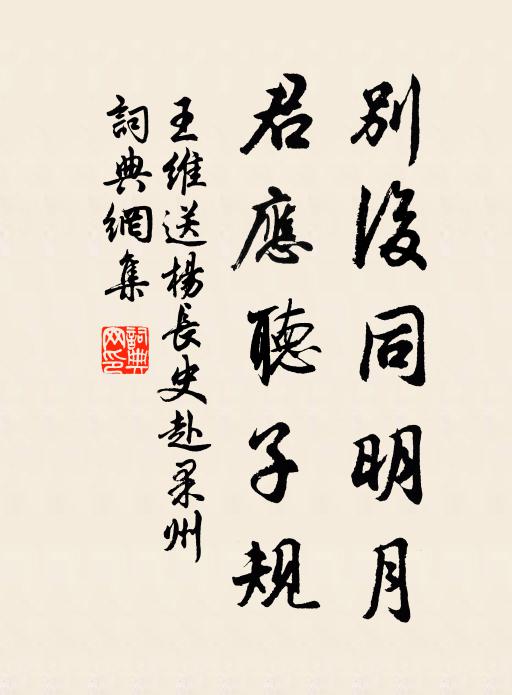 別後同明月
君應聽子規
王維送楊長史赴果州
詞典網集
詞典網印